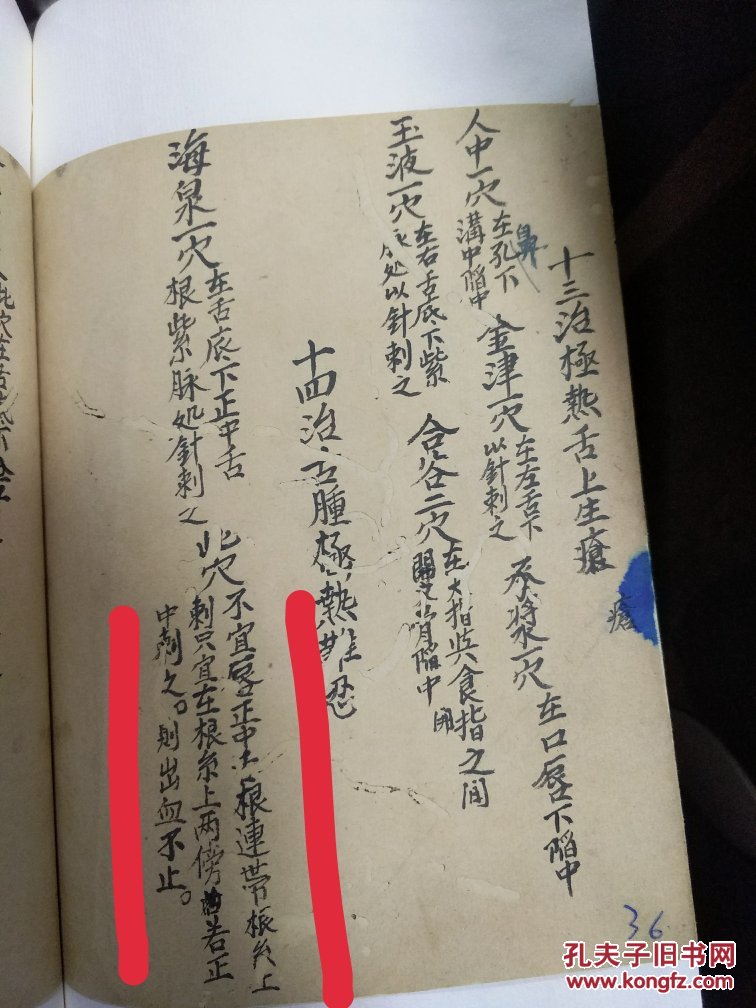 十三治極熱舌上生瘡
瘡
人中一穴在孔下
溝中陷中
鼻
金津一穴在左舌下
以針刺之
承漿一穴在口唇下陷中
玉液一穴在右舌底下紫
处以針刺之
合谷二穴在大指與食指之间
陷中
十四治舌腫極熱難忍
海泉一穴在舌底下正中舌
根紫脉处針刺之
此穴不宜唇正中
根連带根糸上
刺只宜在根糸上两傍
若正
中刺之。則出血不止。
36
孔夫子旧书网
www.kongfz.com